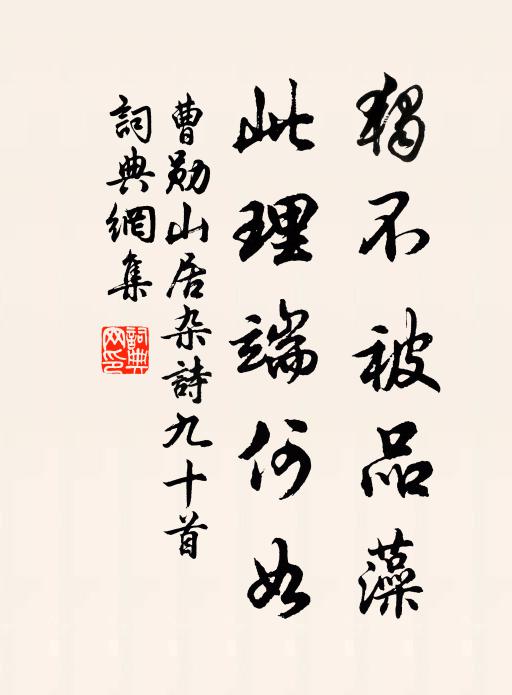 獨不被品藻
此理端何如
曹勛山居杂詩九十首
詞典網集
詞典网印